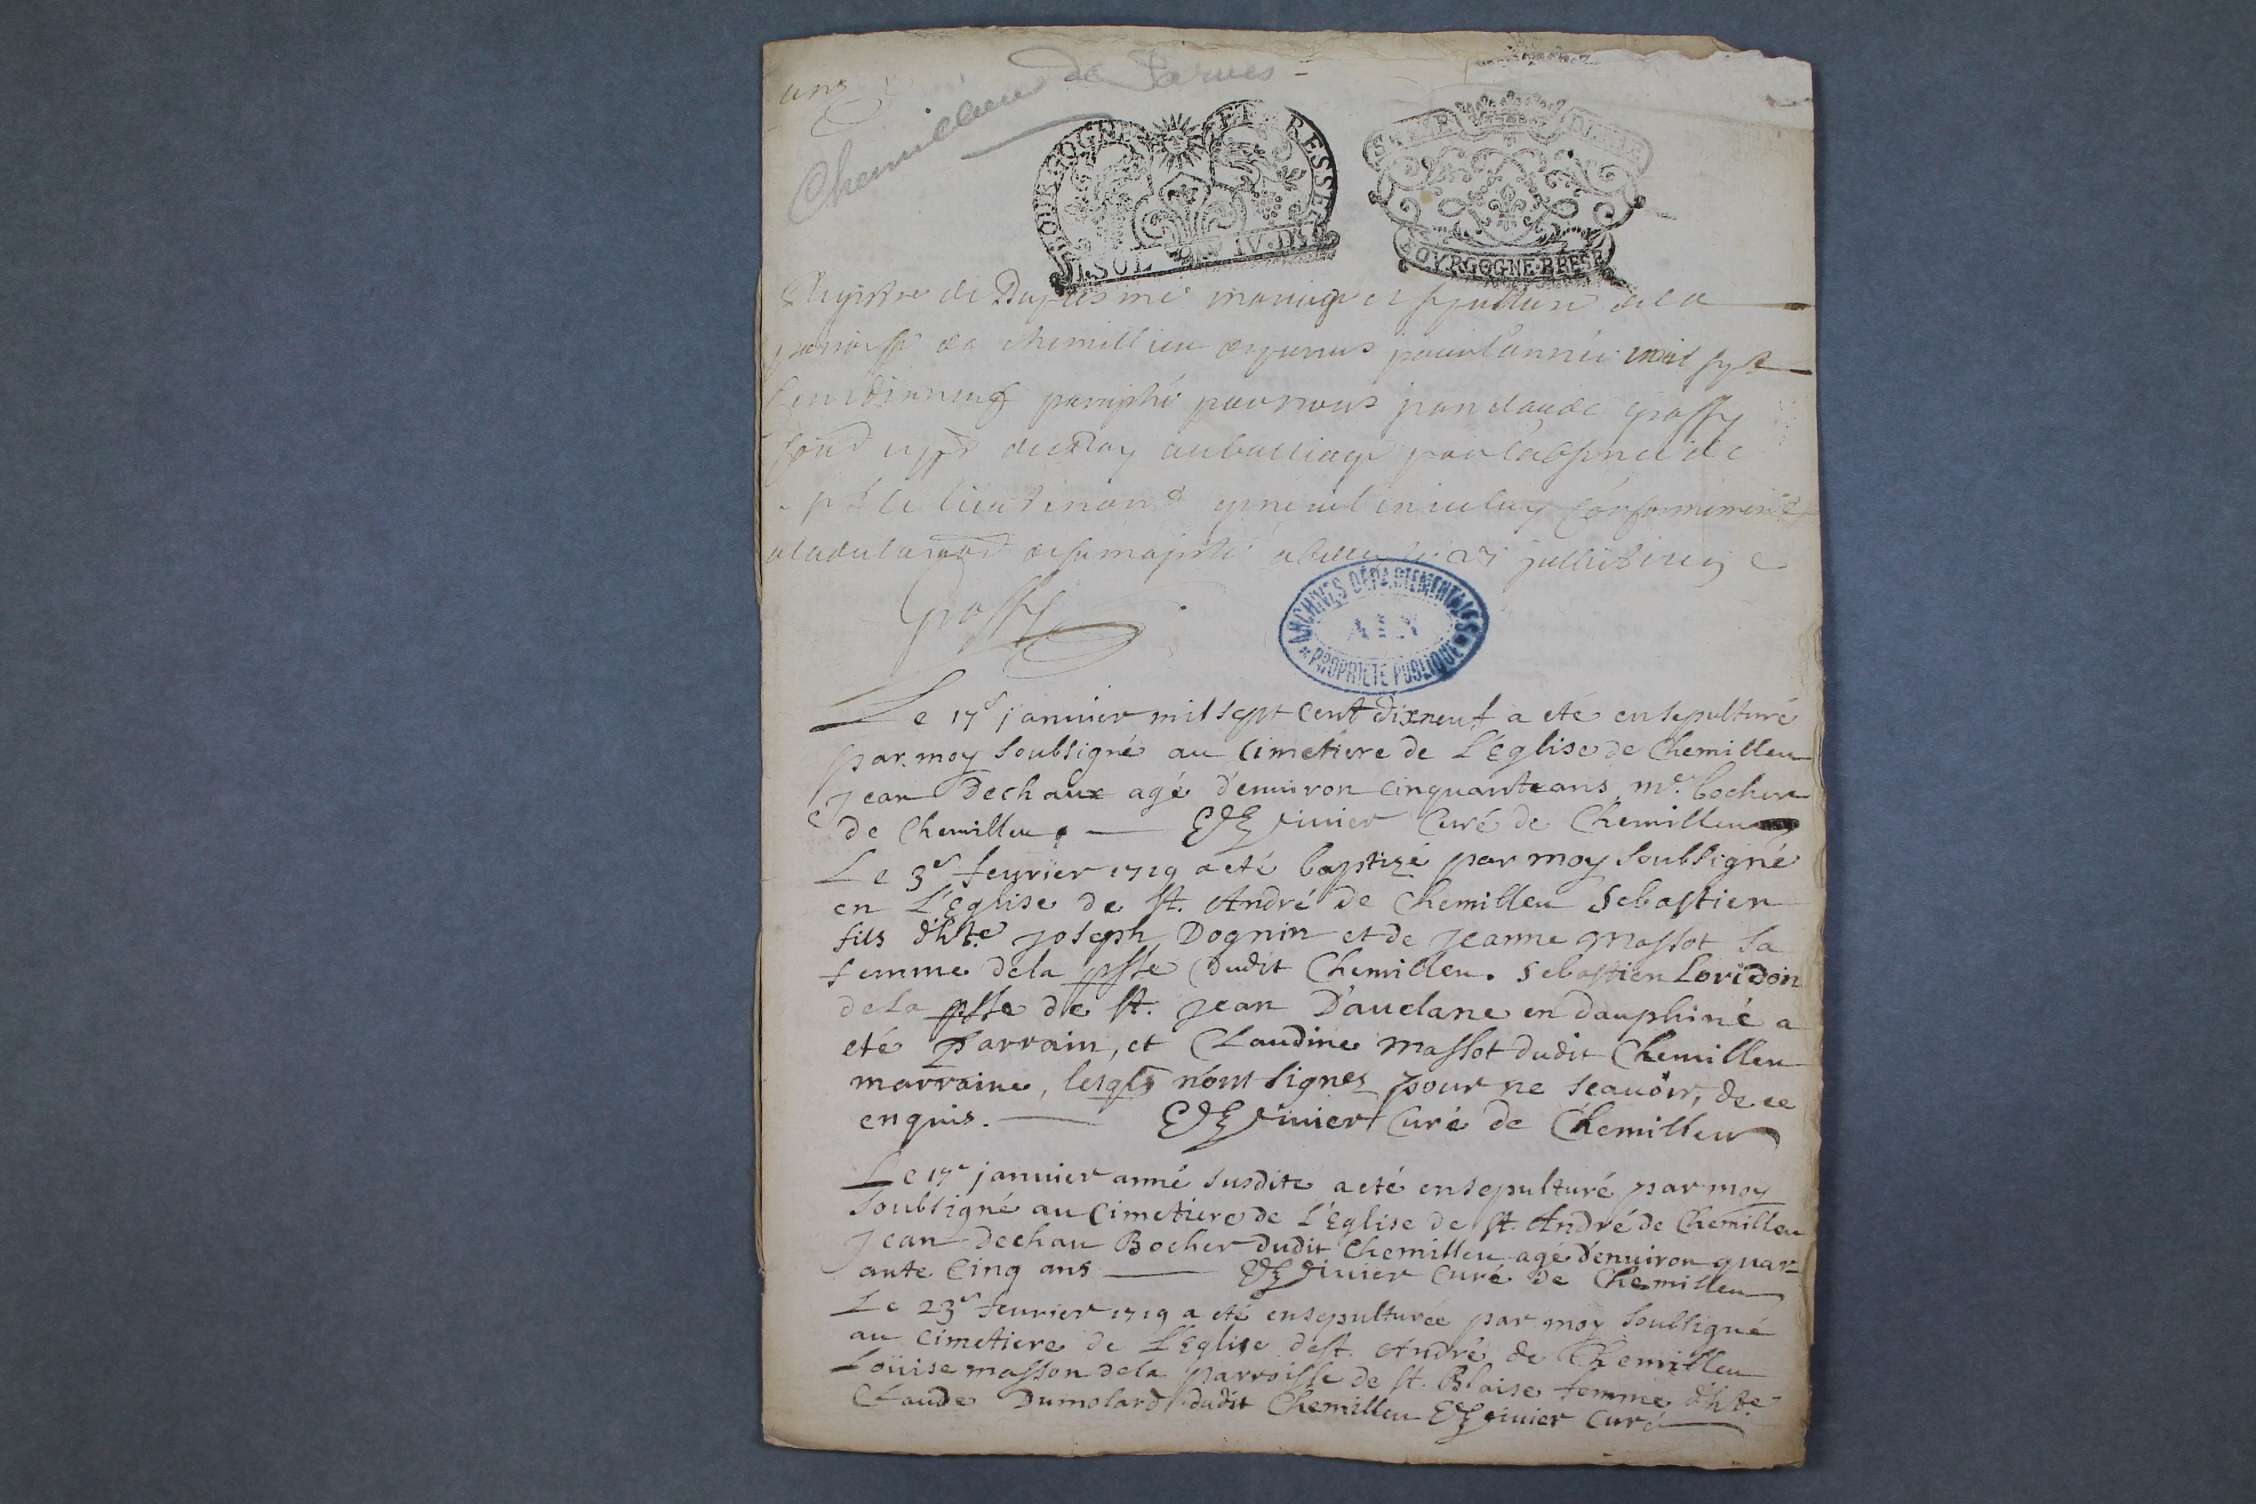 uns
Chemillieu de Parves
BOURGOGNE ET BRESSE
I. SOL IV. D.
BOVRGOGNE BRESSE
Registre de Baptesme mariage et sepulture de la
parroisse de chemillieu pour l'année mil sept
cent dix neuf paraphé par nous jean claude Grassy
du Roy au balliage par l'absence de
le lieutenant general en iceluy conformement
a la declaration de sa majesté a belley le 27 juillet
Grassy
ARCHIVES DÉPARTEMENTALES
AIN
PROPRIÉTÉ PUBLIQUE
Le 17e janvier mil sept cent dixneuf a eté ensepulturé
par moy soubsigné au cimetiere de L'Eglise de Chemilleu
jean Dechaux agé d'environ cinquante ans, me. bocher
de Chemilleu. vivier Curé de Chemilleu
Le 3e fevrier 1719 a eté baptizé par moy soubsigné
en L'Eglise de st. André de Chemilleu Sebastien
fils d'hte. joseph Dognin et de jeanne Massot sa
femme de la psse dudit Chemilleu. Sebastien Loridon
de la psse de st. jean D'avelane en dauphiné a
eté Parrain, et Claudine massot dudit Chemilleu
marraine, lesqls n'ont signez pour ne scavoir, de ce
enquis. vivier Curé de Chemilleu
Le 17e janvier anné susdite a eté ensepulturé par moy
soubsigné au cimetiere de L'Eglise de st. André de Chemilleu
jean dechau Bocher dudit Chemilleu agé d'environ quar=
ante cinq ans vivier Curé de Chemilleu
Le 23e fevrier 1719 a eté ensepulturée par moy soubsigné
au cimetiere de L'Eglise de st. André de Chemilleu
Loüise masson de la parroisse de st. Blaise femme d'hte.
Claude Dumolard dudit Chemilleu vivier Curé